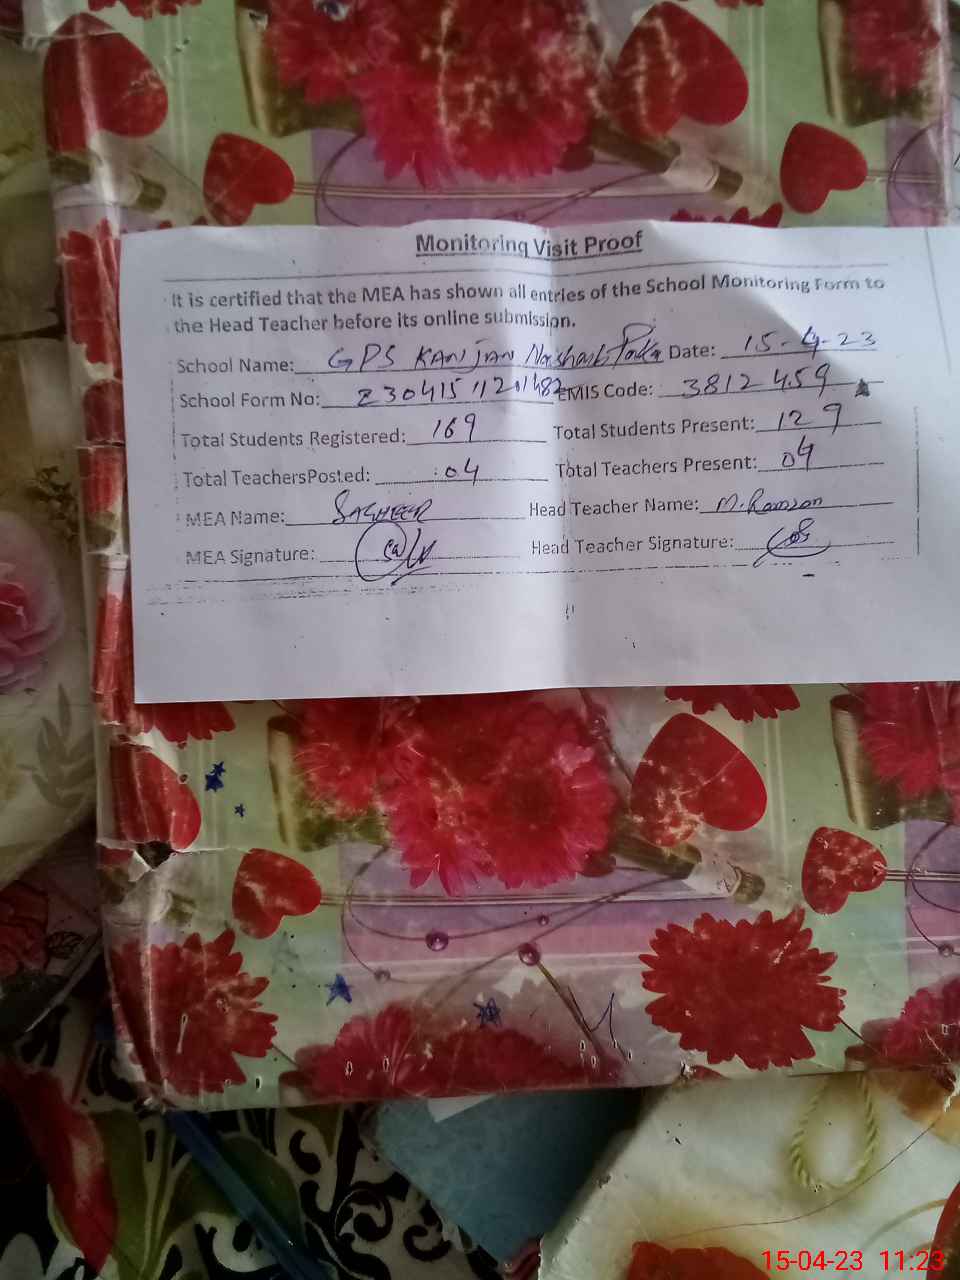 Monitoring Visit Proof
It is certified that the MEA has shown all entries of the School Monitoring Form to
the Head Teacher before its online submission.
School Name: GPS KANJAN Date: 15-4-23
School Form No: EMIS Code: 3812459
Total Students Registered: 169 Total Students Present: 129
Total TeachersPosted: 04 Total Teachers Present: 04
MEA Name: SAGHEER Head Teacher Name: M. Ramzan
MEA Signature: Head Teacher Signature:
15-04-23 11:23